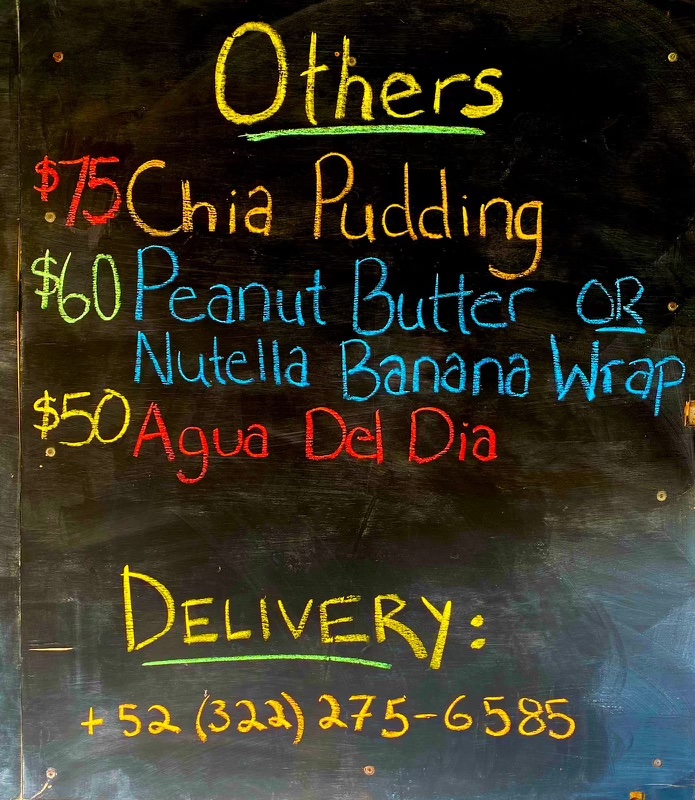 Others
$75 Chia Pudding
$60 Peanut Butter OR
Nutella Banana Wrap
$50 Agua Del Dia
DELIVERY:
+52 (322) 275-6585